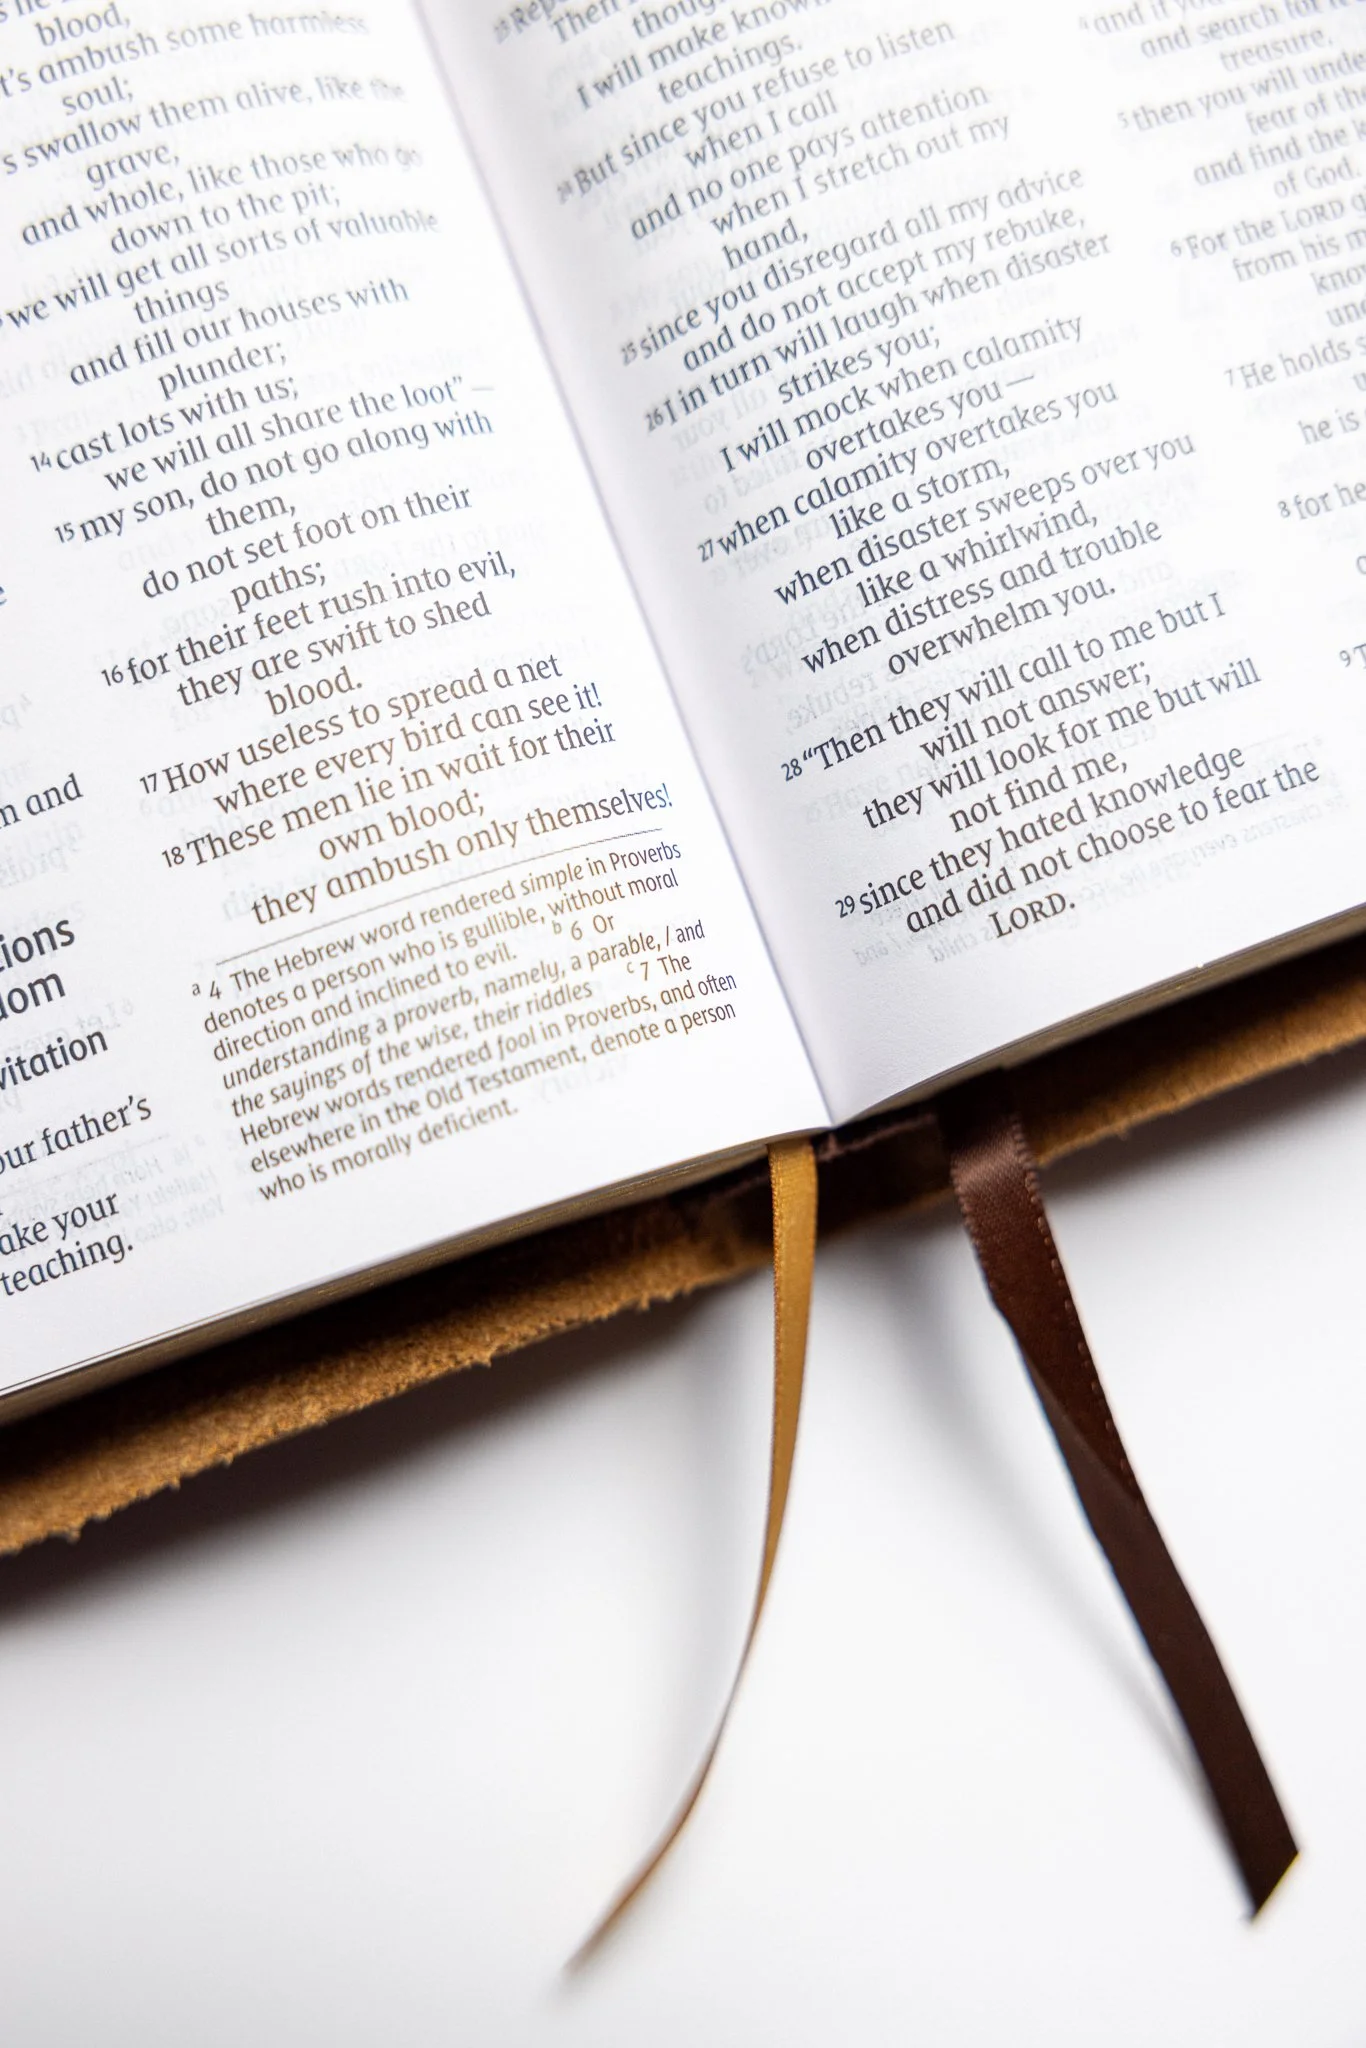 blood,
ambush some harmless
soul;
swallow them alive, like the
grave,
and whole, like those who go
down to the pit;
we will get all sorts of valuable
things
and fill our houses with
plunder;
14 cast lots with us;
we will all share the loot” —
15 my son, do not go along with
them,
do not set foot on their
paths;
16 for their feet rush into evil,
they are swift to shed
blood.
17 How useless to spread a net
where every bird can see it!
18 These men lie in wait for their
own blood;
they ambush only themselves!
and
father’s
your
teaching.
a 4 The Hebrew word rendered simple in Proverbs
denotes a person who is gullible, without moral
direction and inclined to evil. b 6 Or
understanding a proverb, namely, a parable, / and
the sayings of the wise, their riddles c 7 The
Hebrew words rendered fool in Proverbs, and often
elsewhere in the Old Testament, denote a person
who is morally deficient.
Then I
I will make known
teachings.
24 But since you refuse to listen
when I call
and no one pays attention
when I stretch out my
hand,
25 since you disregard all my advice
and do not accept my rebuke,
26 I in turn will laugh when disaster
strikes you;
I will mock when calamity
overtakes you —
27 when calamity overtakes you
like a storm,
when disaster sweeps over you
like a whirlwind,
when distress and trouble
overwhelm you.
28 “Then they will call to me but I
will not answer;
they will look for me but will
not find me,
29 since they hated knowledge
and did not choose to fear the
LORD.
4 and if
and search for
treasure,
5 then you will
fear of the
and find the
of God.
6 For the LORD
from his
7 He holds
he is
8 for
9